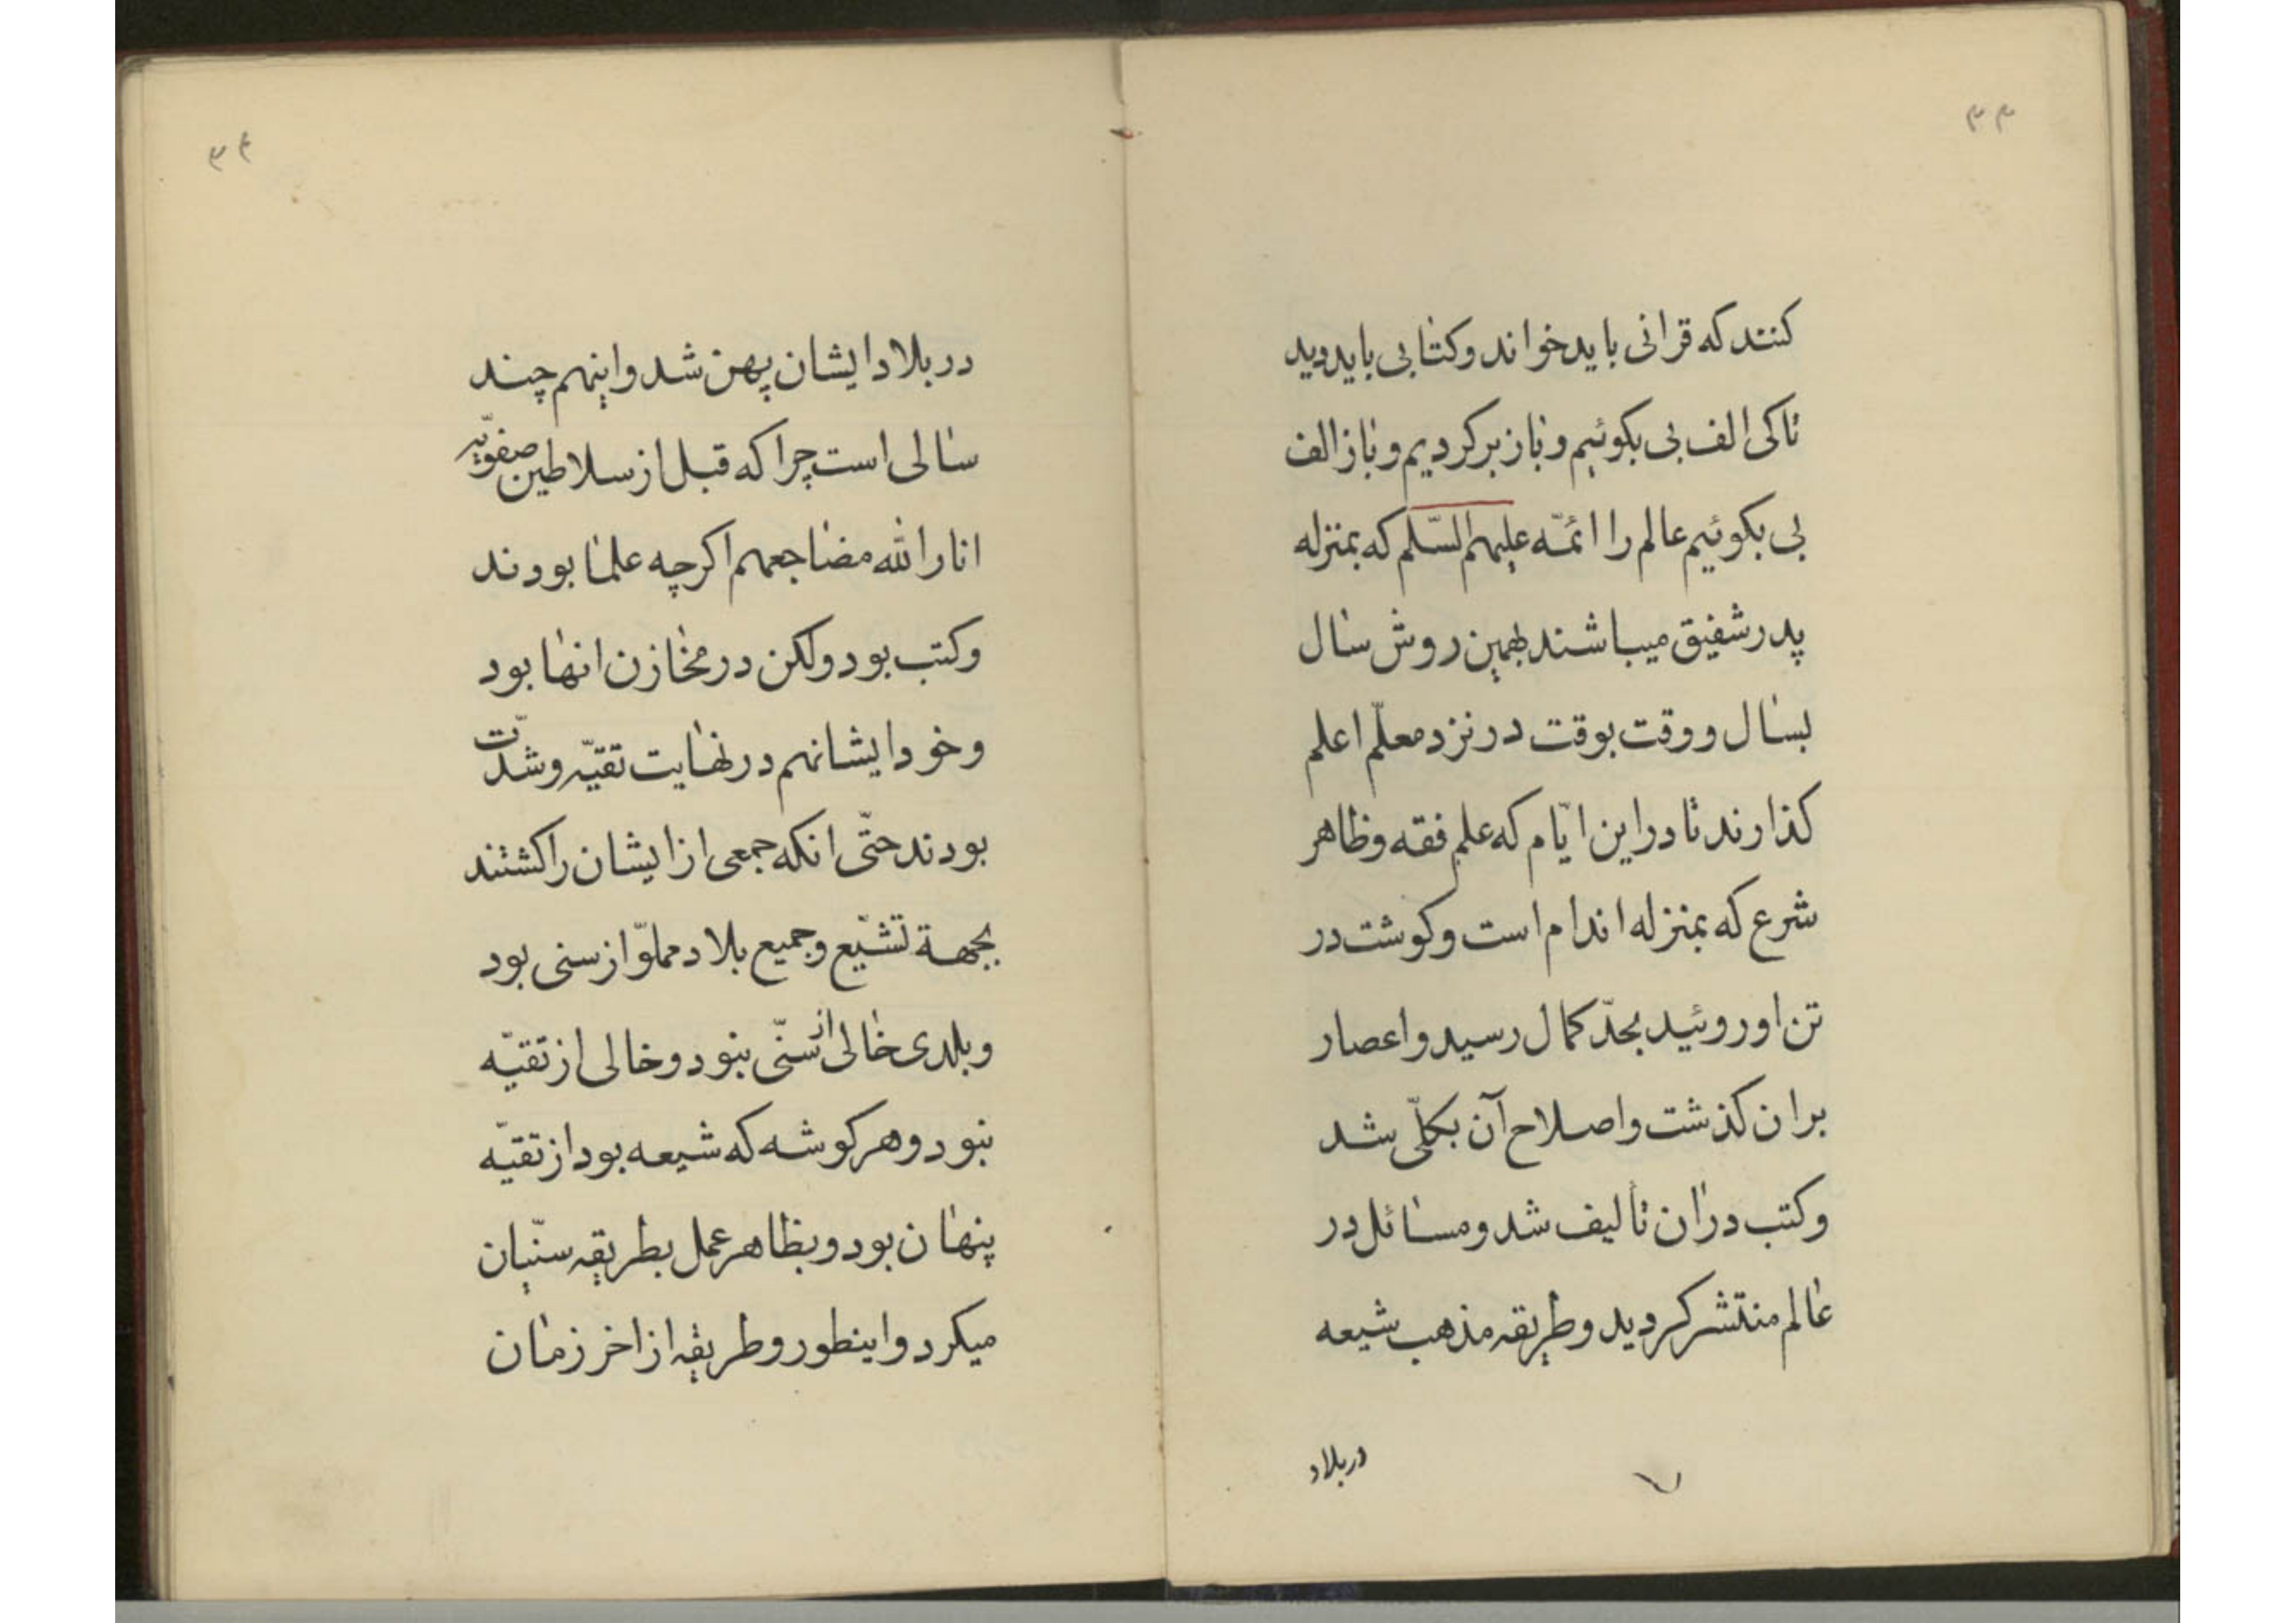 ۳۳
کنند که قرانی باید خواند و کتابی باید دید
تا کی الف بی بکوئیم و باز برکردیم و باز الف
بی بکوئیم عالم را ائمّه علیهم السّلم که بمنزله
پدر شفیق میباشند بهمین روش سال
بسال و وقت بوقت در نزد معلّم اعلم
کذارند تا در این ایّام که علم فقه و ظاهر
شرع که بمنزله اندام است و کوشت در
تن او روئید بحدّ کمال رسید و اعصار
بران کذشت و اصلاح آن بکلّی شد
و کتب دران تألیف شد و مسائل در
عالم منتشر کردید و طریقه مذهب شیعه
در بلاد
۳۴
در بلاد ایشان پهن شد و اینهم چند
سالی است چرا که قبل از سلاطین صفویّه
انار الله مضاجعهم اکرچه علما بودند
و کتب بود ولکن در مخازن انها بود
و خود ایشانهم در نهایت تقیّه و شدّت
بودند حتّی انکه جمعی از ایشان را کشتند
بجهة تشیّع و جمیع بلاد مملوّ از سنی بود
و بلدی خالی از سنّی نبود و خالی از تقیّه
نبود و هر کوشه که شیعه بود از تقیّه
پنهان بود و بظاهر عمل بطریقه سنّیان
میکرد و اینطور و طریقه از اخر زمان